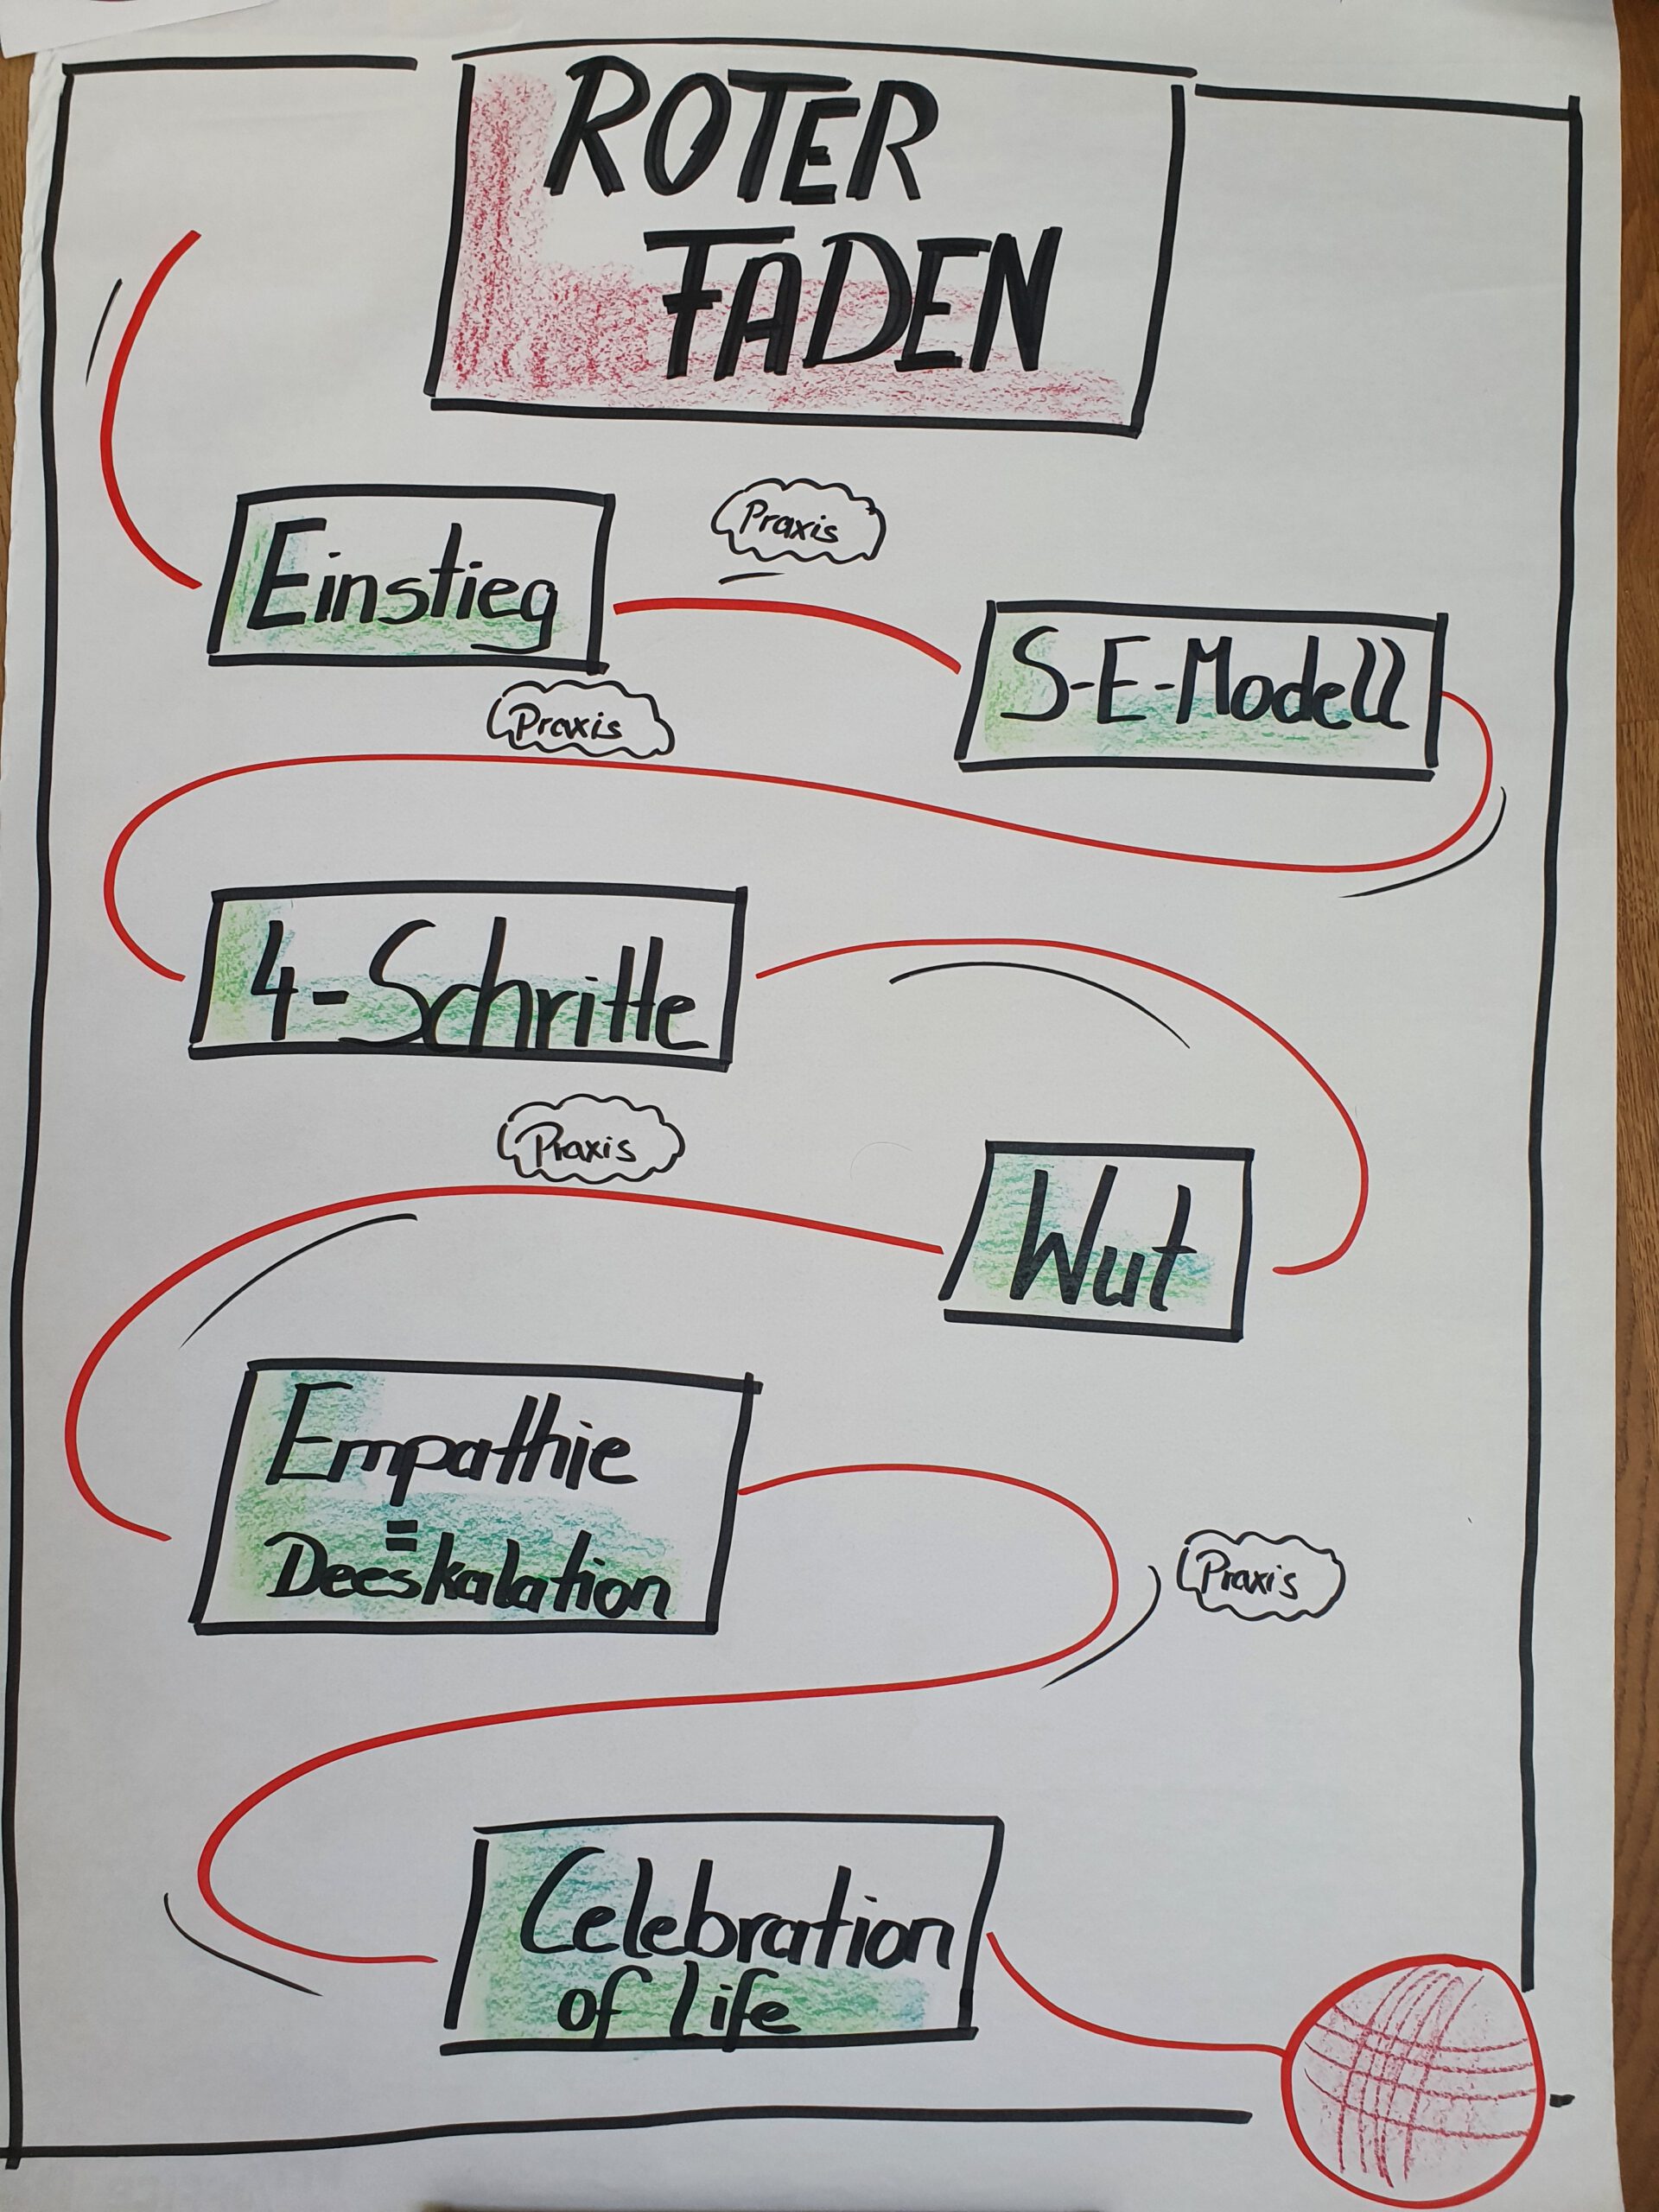 ROTER
FADEN
Einstieg
Praxis
S-E-Modell
Praxis
4-Schritte
Praxis
Wut
Empathie
=
Deeskalation
Praxis
Celebration
of Life